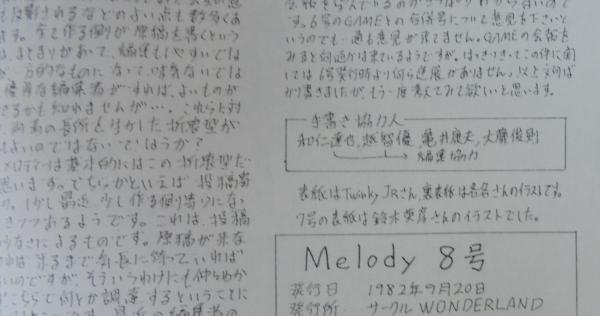 も反映されるなどのよい点も数多くあ
ります。全て作る側が原稿を書くという
は、まとまりがあって、編集もしやすいでは
が、一方的なものになって、活気ないでは
優秀な編集者がすれば、よいものが
きるかも知れませんが…。これらと対
両者の長所を生かした折衷型が
よいのではないでほうか？
メロディーは基本的にはこの折衷型だ
思います。でちらかといえば投稿寄
。しかし最近、少し作る側寄りにな
きつつあるようです。これは、投稿
少なさによるものです。原稿が来な
れば来るまで気長に待っていれば
いのですが、そういうわけにも仲々ゆか
ずこちらで何とか調達するということに
す。6号のGAMEとの合併号について意見を下さいと
いうのでも一通も意見が来てません。GAMEの会報を
みると何通かは来ているようですが。はっきりきってこの件に関
しては6号発行時より何ら進展がありません。以上文句ば
かり書きましたが、もう一度考えてみて欲しいと思います。
手書き協力人
和仁達也,越智優,亀井康夫,大屬俊則
編集協力
表紙はTwinky JRさん,裏表紙は各名さんのイラストです。
7号の表紙は鈴木英岸さんのイラストでした。
Melody 8号
発行日 1982年9月20日
発行所 サークルWONDERLAND